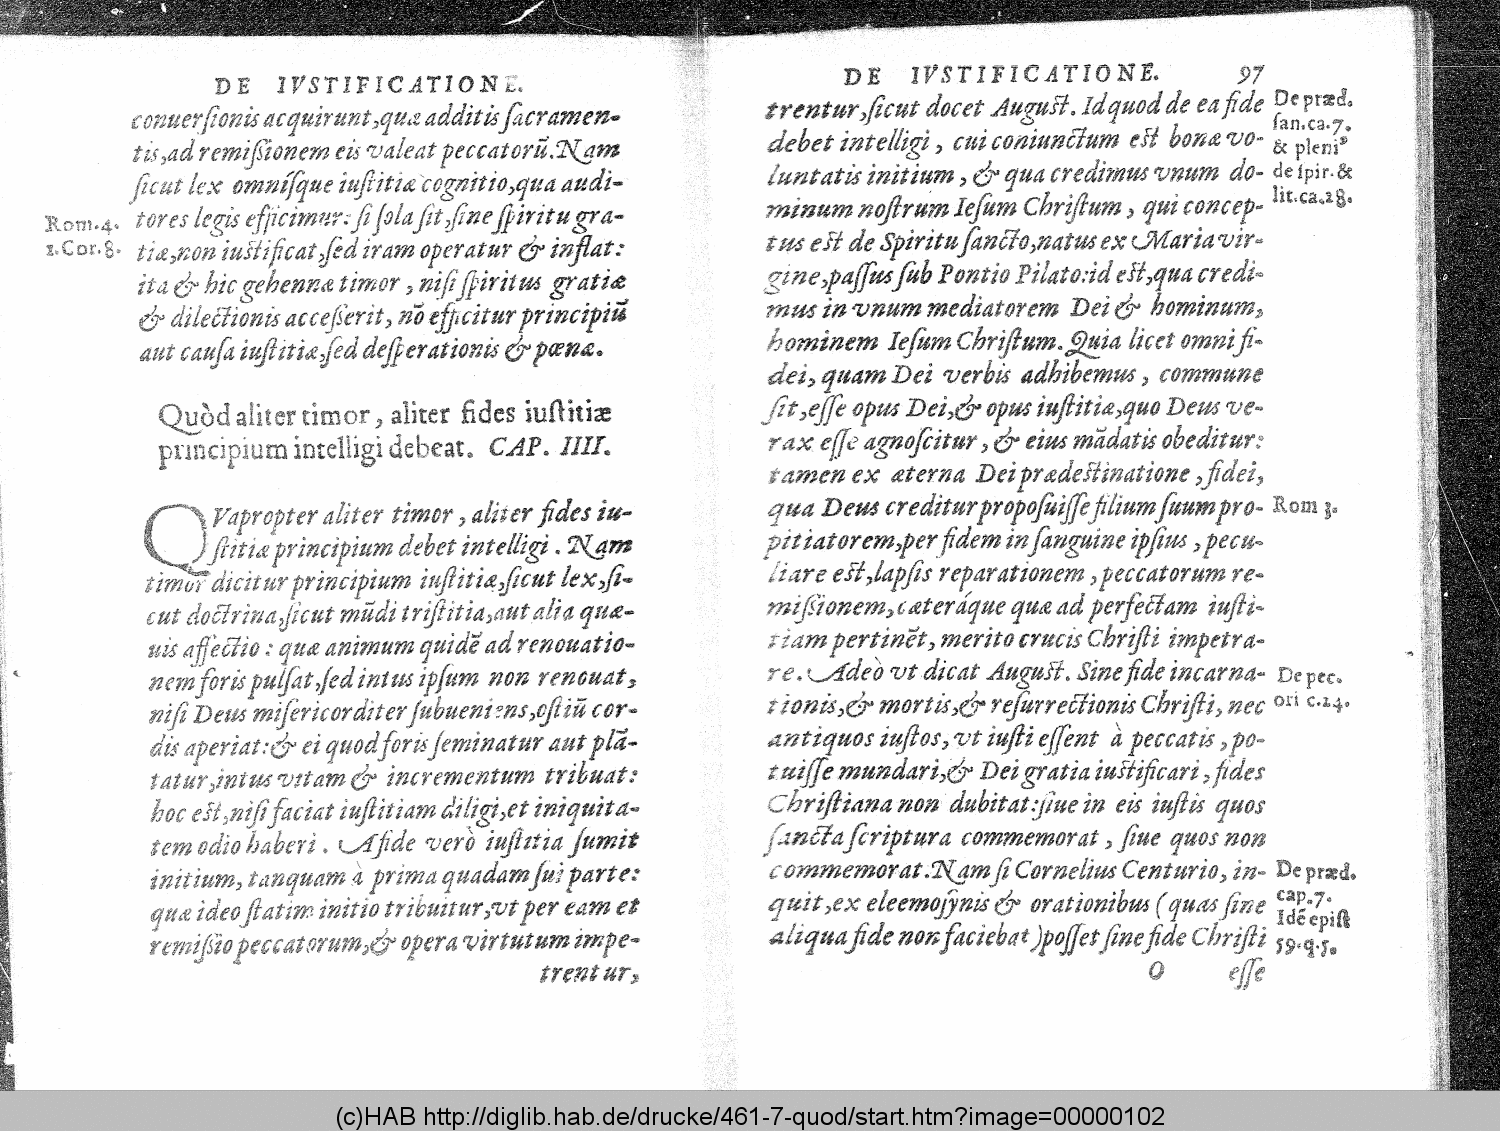 DE IVSTIFICATIONE.
conuerſionis acquirunt, quæ additis ſacramen-
tis, ad remiſsionem eis valeat peccatorũ. Nam
ſicut lex omníſque iuſtitiæ cognitio, qua audi-
tores legis efficimur: ſi ſola ſit, ſine ſpiritu gra-
tiæ, non iuſtificat, ſed iram operatur & inflat:
ita & hic gehennæ timor, niſi ſpiritus gratiæ
& dilectionis acceſserit, nõ efficitur principiũ
aut cauſa iuſtitiæ, ſed deſperationis & pœnæ.
Rom. 4.
1. Cor. 8.
Quòd aliter timor, aliter fides iuſtitiæ
principium intelligi debeat. CAP. IIII.
QVapropter aliter timor, aliter fides iu-
ſtitiæ principium debet intelligi. Nam
timor dicitur principium iuſtitiæ, ſicut lex, ſi-
cut doctrina, ſicut mũdi triſtitia, aut alia quæ-
uis affectio: quæ animum quidẽ ad renouatio-
nem foris pulſat, ſed intus ipſum non renouat,
niſi Deus miſericorditer ſubueniens, oſtiũ cor-
dis aperiat: & ei quod foris ſeminatur aut plã-
tatur, intus vitam & incrementum tribuat:
hoc eſt, niſi faciat iuſtitiam diligi, et iniquita-
tem odio haberi. A fide verò iuſtitia ſumit
initium, tanquam à prima quadam ſui parte:
quæ ideo ſtatim initio tribuitur, vt per eam et
remiſsio peccatorum, & opera virtutum impe-
trentur,
DE IVSTIFICATIONE. 97
trentur, ſicut docet Auguſt. Id quod de ea fide
debet intelligi, cui coniunctum eſt bonæ vo-
luntatis initium, & qua credimus vnum do-
minum noſtrum Ieſum Chriſtum, qui concep-
tus eſt de Spiritu ſancto, natus ex Maria vir-
gine, paſſus ſub Pontio Pilato: id eſt, qua credi-
mus in vnum mediatorem Dei & hominum,
hominem Ieſum Chriſtum. Quia licet omni fi-
dei, quam Dei verbis adhibemus, commune
ſit, eſſe opus Dei, & opus iuſtitiæ, quo Deus ve-
rax eſſe agnoſcitur, & eius mãdatis obeditur:
tamen ex æterna Dei prædeſtinatione, fidei,
qua Deus creditur propoſuiſſe filium ſuum pro-
pitiatorem, per fidem in ſanguine ipſius, pecu-
liare eſt, lapſis reparationem, peccatorum re-
miſsionem, cæteráque quæ ad perfectam iuſti-
tiam pertinẽt, merito crucis Chriſti impetra-
re. Adeò vt dicat Auguſt. Sine fide incarna-
tionis, & mortis, & reſurrectionis Chriſti, nec
antiquos iuſtos, vt iuſti eſſent à peccatis, po-
tuiſſe mundari, & Dei gratia iuſtificari, fides
Chriſtiana non dubitat: ſiue in eis iuſtis quos
ſancta ſcriptura commemorat, ſiue quos non
commemorat. Nam ſi Cornelius Centurio, in-
quit, ex eleemoſynis & orationibus (quas ſine
aliqua fide non faciebat) poſſet ſine fide Chriſti
O eſſe
De præd.
ſan. ca. 7.
& pleniꝰ
de ſpir. &
lit. ca. 28.
Rom 3.
De pec.
ori c. 24.
De præd.
cap. 7.
Idẽ epiſt
59. q. 5.
(c)HAB http://diglib.hab.de/drucke/461-7-quod/start.htm?image=00000102